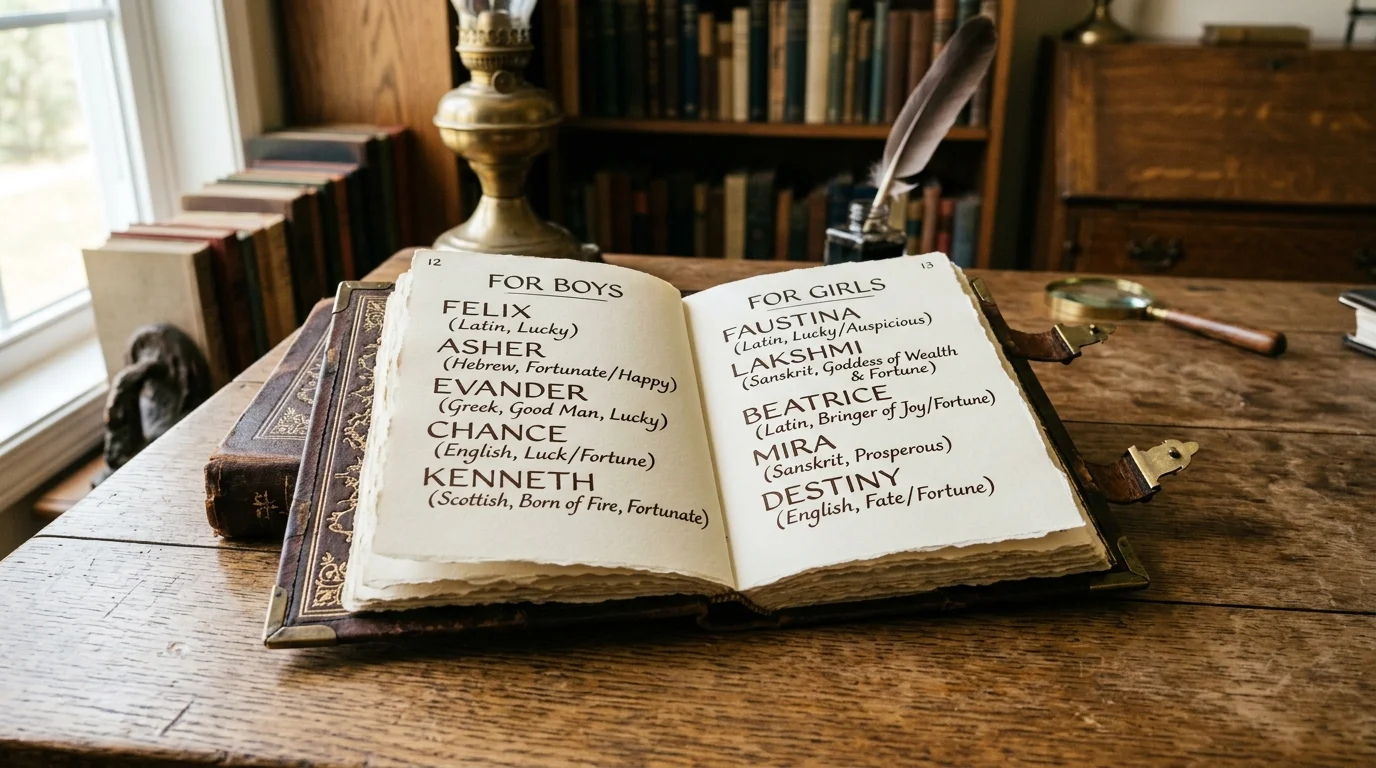 12
FOR BOYS
FELIX
(Latin, Lucky)
ASHER
(Hebrew, Fortunate/Happy)
EVANDER
(Greek, Good Man, Lucky)
CHANCE
(English, Luck/Fortune)
KENNETH
(Scottish, Born of Fire, Fortunate)
13
FOR GIRLS
FAUSTINA
(Latin, Lucky/Auspicious)
LAKSHMI
(Sanskrit, Goddess of Wealth
& Fortune)
BEATRICE
(Latin, Bringer of Joy/Fortune)
MIRA
(Sanskrit, Prosperous)
DESTINY
(English, Fate/Fortune)